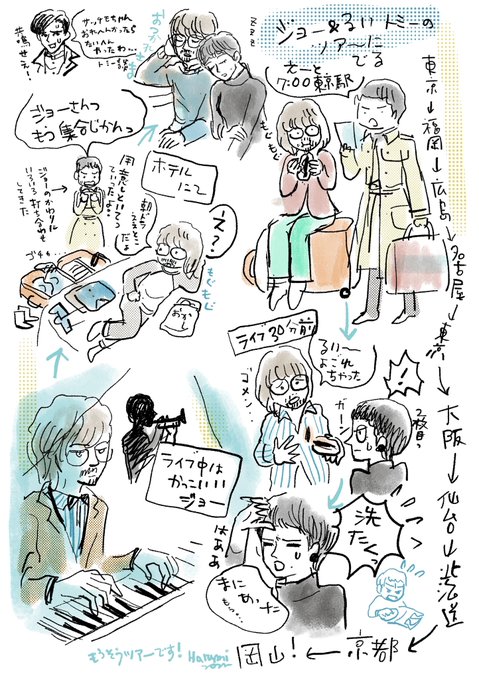 ジョー&るい トミーの
ツアーにでる
東京→福岡→広島→名古屋→東京→大阪→仙台→渋谷→京都→岡山!
えーと
7:00東京駅
もぐもぐ
zzz
サッチモちゃん
おれへんかったら
たいへん
やったわ…
トミー談
ジョーさんっ
もう集合じかんっ
ジョーのかわりに
いろいろ打ち合わせ
してきた
ホテル
にて
え?
もぐもぐ
用意しといてって
いったよ…
おかし
ゴチャ…
ライブ30分前
るい〜
よごれ
ちゃった
ゴメン…
ガーン
!
2枚目
洗たくっ
はぁぁ
まに
あった
もう…
ライブ中は
かっこいい
ジョー
もうそうツアーです!
Harumi